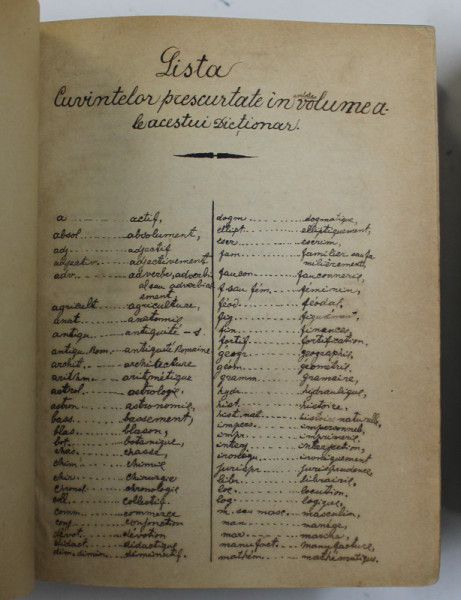 Lista
Cuvintelor prescurtate in volume a-
le acestui Dictionar.
a ........ actif,
absol ........ absolument,
adj ........ adjectif
adjectiv ........ adjectivement
adv ........ adverbe, adverbi
al sau adverbia
sement
agricult ........ agriculture,
anat ........ anatomie
antiqu ........ antiquité - s.
antiqu. Rom. ........ antiquité Romaine
archit ........ architecture
arithm ........ aritmétique
astrol ........ astrologie
astron ........ astronomie,
bass ........ bassement,
blas ........ blason,
bot ........ botanique,
chas ........ chasse,
chim ........ chimie
chir ........ chirurgie
chronol ........ chronologie
coll ........ collectif
comm ........ commerce
conj ........ conjonction
dévot ........ dévotion
didact ........ didactique
dim. dimin ........ diminutif.
dogm ........ dogmatique,
ellipt ........ elliptiquement,
escr ........ escrim,
fam ........ familier
milièrement,
faucon ........ fauconnerie,
f sau fém ........ féminin,
féod ........ féodal,
fig ........ figurément,
fin ........ finances,
fortif ........ fortification,
géogr ........ geographie,
géom ........ geometrie,
gramm ........ gramaire,
hydr ........ hydraulique,
hist ........ histoire,
hist. nat. ........ histoire naturelle,
impers ........ impersonnel,
impr ........ imprimerie
interj ........ interjection,
ironiqu ........ ironiquement
jurispr ........ jurisprudence,
libr ........ librairie,
loc ........ locution,
log ........ logique,
m. sau masc. ........ masculin,
man ........ manège,
mar ........ marine,
manufact ........ manufacture,
mathém ........ mathématiques.